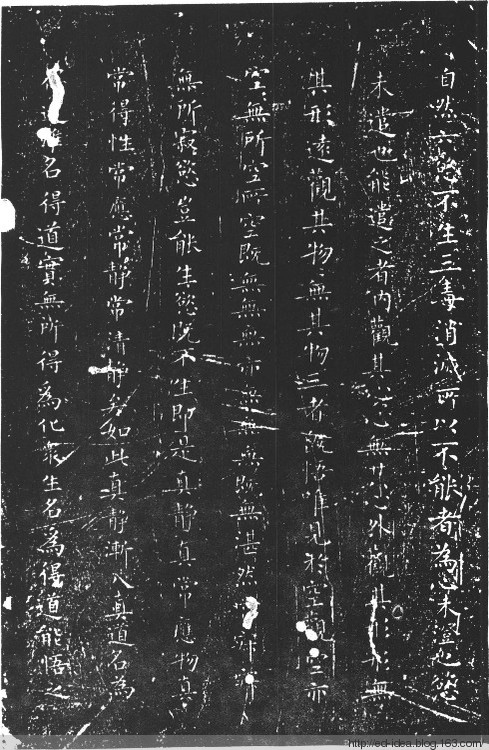 自然六慾不生三毒消滅所以不能者為心未澄也慾
未遣也能遣之者內觀其心心無其心外觀其形形無
其形遠觀其物々無其物三者既悟唯見於空觀空亦
空々無所空所空既無無無亦無無無既無湛然寂
無所寂慾豈能生慾既不生即是真靜真常應物真
常得性常應常靜常清靜矣如此真靜漸入真道名為
得道雖名得道實無所得為化眾生名為得道能悟之
http://ed-idea.blog.163.com